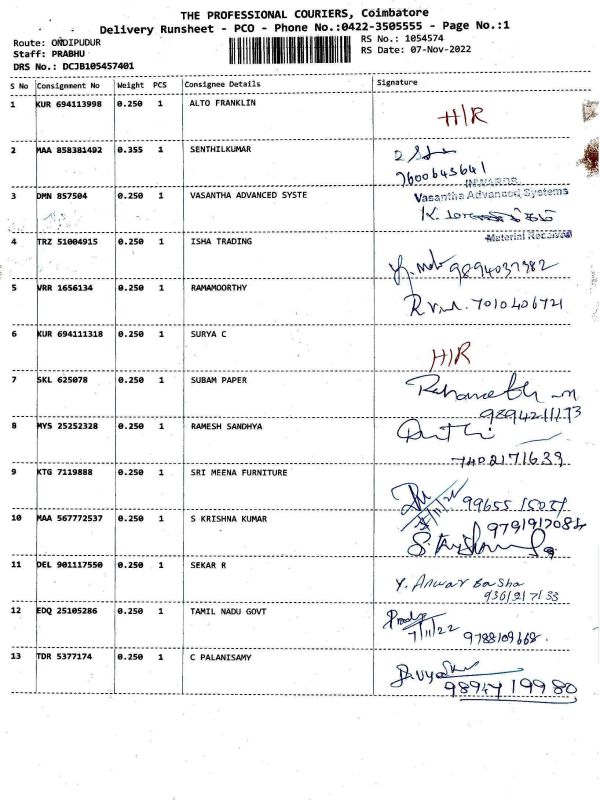 THE PROFESSIONAL COURIERS, Coimbatore
Delivery Runsheet - PCO - Phone No.:0422-3505555 - Page No.:1
Route: ONDIPUDUR
RS No.: 1054574
Staff: PRABHU
RS Date: 07-Nov-2022
DRS No.: DCJB105457401
S No Consignment No Weight PCS Consignee Details Signature
1 KUR 694113998 0.250 1 ALTO FRANKLIN
H/R
2 MAA 858381492 0.355 1 SENTHILKUMAR
7600643641
INWARDS
3 DMN 857504 0.250 1 VASANTHA ADVANCED SYSTE
Vasantha Advanced Systems
4 TRZ 51004915 0.250 1 ISHA TRADING
Material Received
9894037382
5 VRR 1656134 0.250 1 RAMAMOORTHY
7010406721
6 KUR 694111318 0.250 1 SURYA C
H/R
7 SKL 625078 0.250 1 SUBAM PAPER
9894211173
8 MYS 25252328 0.250 1 RAMESH SANDHYA
7402171639
9 KTG 7119888 0.250 1 SRI MEENA FURNITURE
99655
10 MAA 567772537 0.250 1 S KRISHNA KUMAR
11 DEL 901117550 0.250 1 SEKAR R
Y. Anwar Basha
12 EDQ 25105286 0.250 1 TAMIL NADU GOVT
7/11/22 9788109668.
13 TDR 5377174 0.250 1 C PALANISAMY